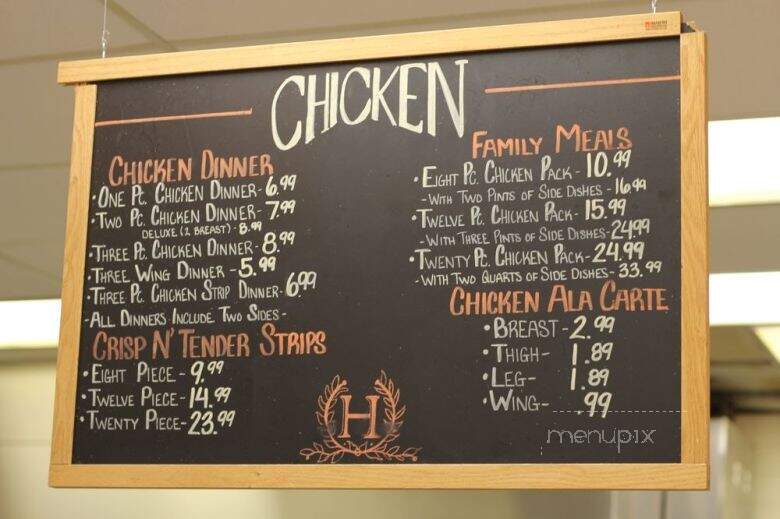 CHICKEN
CHICKEN DINNER
•ONE PC. CHICKEN DINNER-6.99
•TWO PC. CHICKEN DINNER-7.99
DELUXE (2 BREAST)-8.99
•THREE PC. CHICKEN DINNER-8.99
•THREE WING DINNER-5.99
•THREE PC. CHICKEN STRIP DINNER-6.99
-ALL DINNERS INCLUDE TWO SIDES-
CRISP N' TENDER STRIPS
•EIGHT PIECE-9.99
•TWELVE PIECE-14.99
•TWENTY PIECE-23.99
FAMILY MEALS
•EIGHT PC. CHICKEN PACK-10.99
-WITH TWO PINTS OF SIDE DISHES-16.99
•TWELVE PC. CHICKEN PACK-15.99
-WITH THREE PINTS OF SIDE DISHES-24.99
•TWENTY PC. CHICKEN PACK-24.99
-WITH TWO QUARTS OF SIDE DISHES-33.99
CHICKEN ALA CARTE
•BREAST-2.99
•THIGH-1.89
•LEG-1.89
•WING-.99
H
menupix